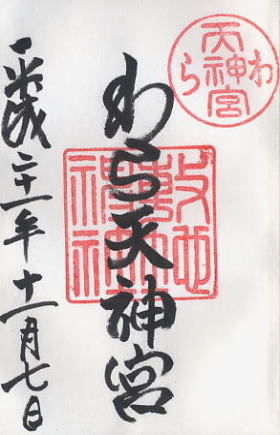 わら天神宮
わら天神宮
敷地神社
平成二十一年十一月七日